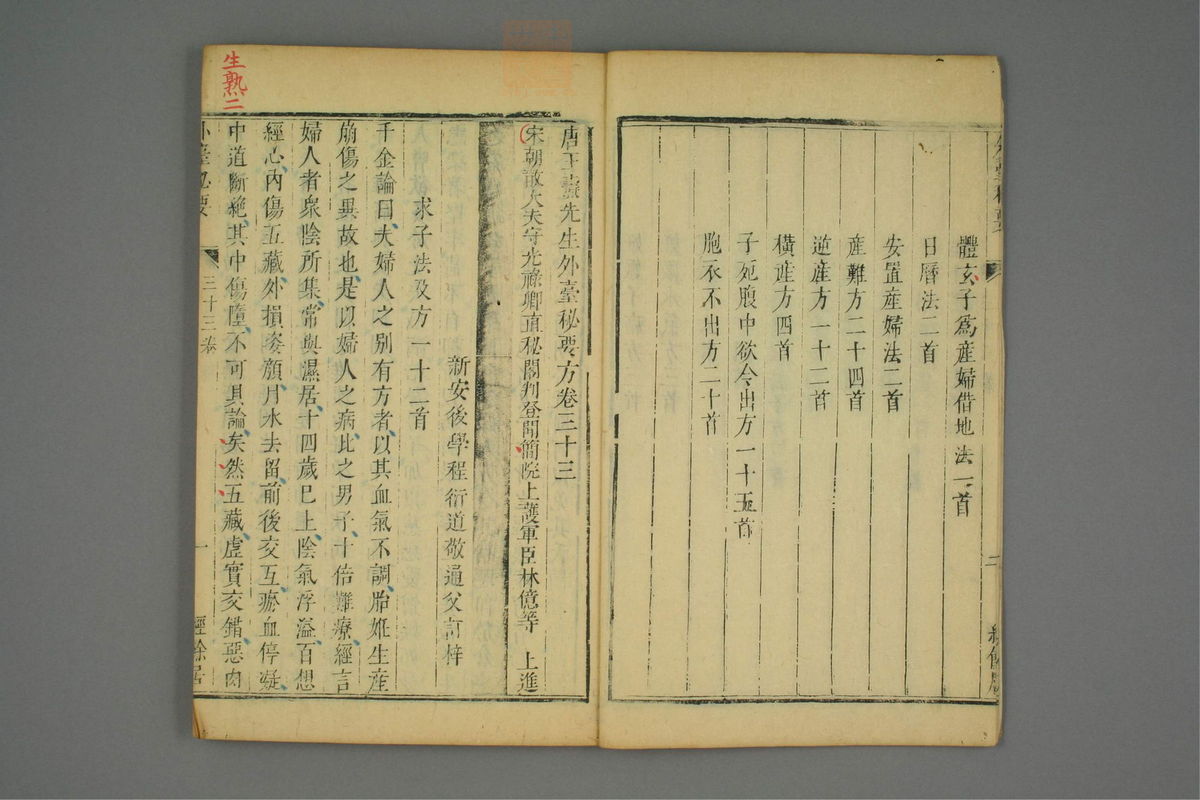 體玄子爲產婦借地法一首
日曆法二首
安置產婦法二首
產難方二十四首
逆產方一十二首
橫產方四首
子死腹中欲令出方一十五首
胞衣不出方二十首
二
唐王燾先生外臺秘要方卷三十三
宋朝散大夫守光祿卿直秘閣判登聞簡院上護軍臣林億等　上進
新安後學程衍道敬通父訂梓
求子法及方一十二首
千金論曰夫婦人之別有方者以其血氣不調胎姙生產
崩傷之異故也是以婦人之病比之男子十倍難療經言
婦人者衆陰所集常與濕居十四歲已上陰氣浮溢百想
經心內傷五藏外損姿顏月水去留前後交互瘀血停凝
中道斷絕其中傷墮不可具論矣然五藏虛實交錯惡肉
外臺秘要
三十三卷
一
經餘居
生熟二